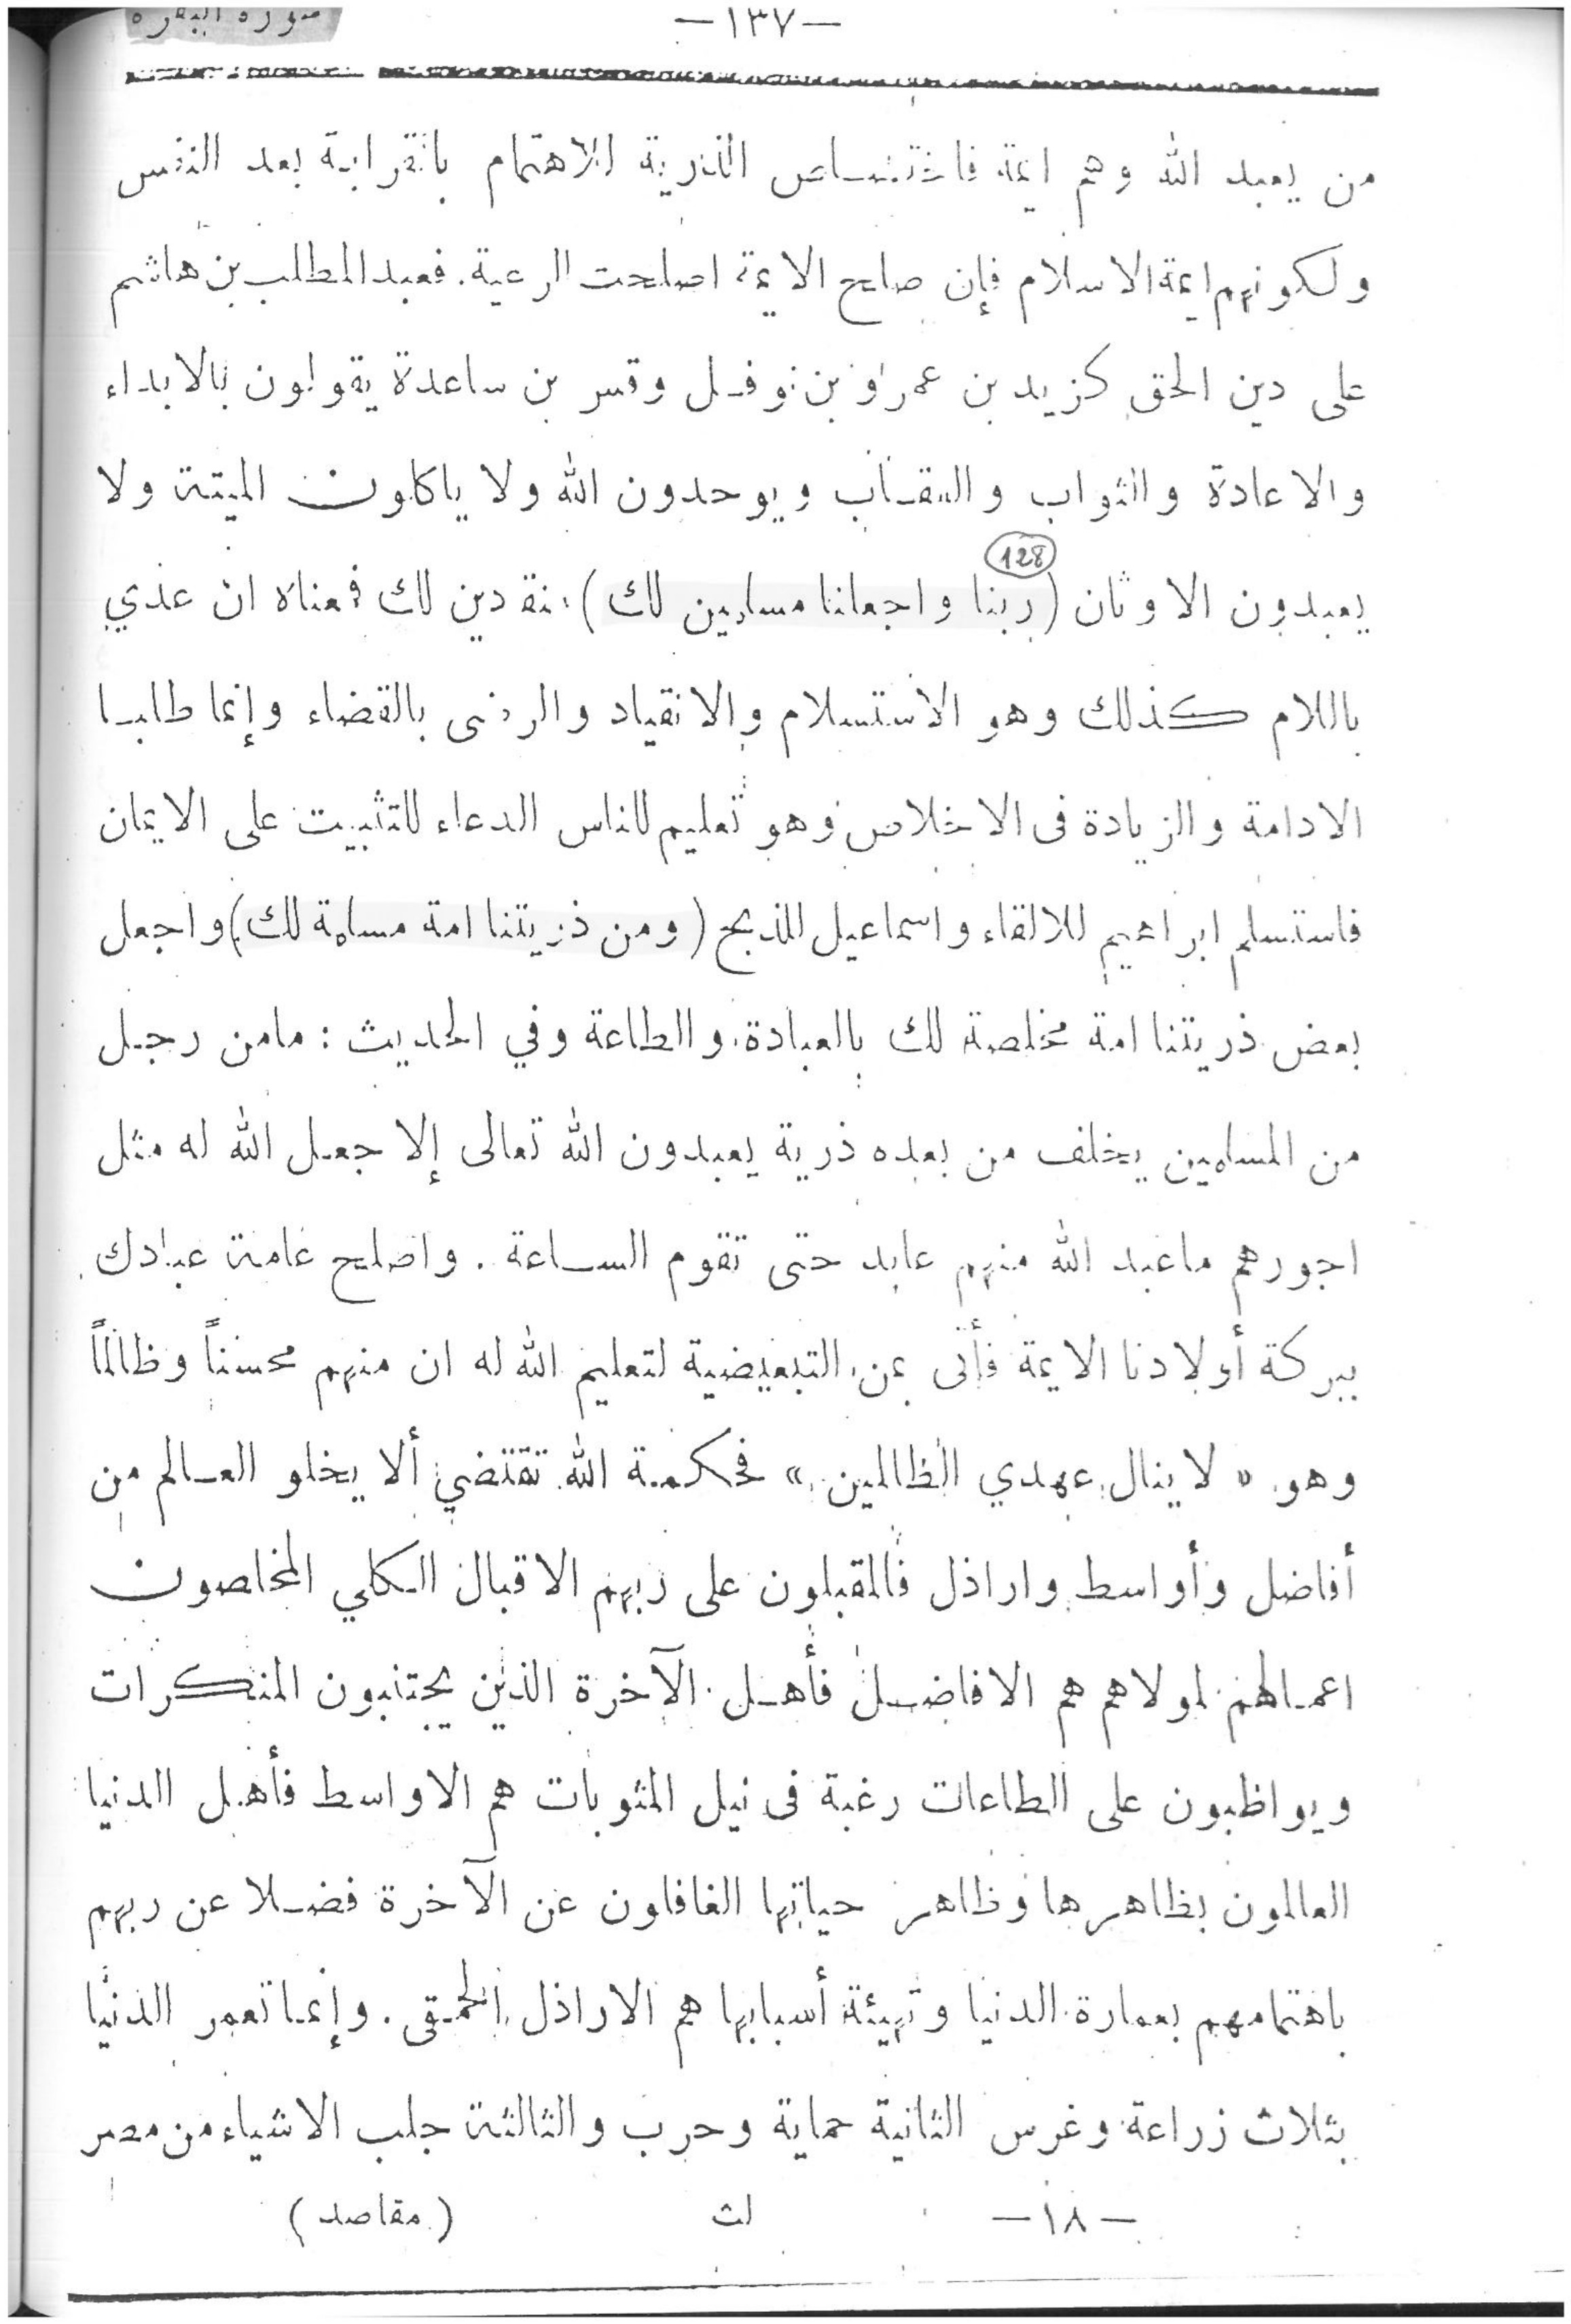 سورة البقرة
—١٣٧—
من يعبد الله وهم ايمة فاختصاص الذرية الاهتمام بالقرابة بعد النفس
ولكونهم ايمة الاسلام فإن صلح الايمة اصلحت الرعية. فعبد المطلب بن هاشم
على دين الحق كزيد بن عمرو بن نوفل وقس بن ساعدة يقولون بالابداء
والاعادة والثواب والعقاب ويوحدون الله ولا ياكلون الميتة ولا
128
يعبدون الاوثان (ربنا واجعلنا مسلمين لك) منقدين لك فمعناه ان عدي
باللام كذلك وهو الاستسلام والانقياد والرضى بالقضاء وإنما طلبا
الادامة والزيادة فى الاخلاص وهو تعليم للناس الدعاء للتثبيت على الايمان
فاستسلم ابراهيم للالقاء واسماعيل للذبح (ومن ذريتنا امة مسلمة لك) واجعل
بعض ذريتنا امة مخلصة لك بالعبادة والطاعة وفي الحديث : مامن رجل
من المسلمين يخلف من بعده ذرية يعبدون الله تعالى إلا جعل الله له مثل
اجورهم ماعبد الله منهم عابد حتى تقوم الساعة . واصلح عامة عبادك
ببركة أولادنا الايمة فأتى بمن التبعيضية لتعليم الله له ان منهم محسناً وظالماً
وهو « لاينال عهدي الظالمين » فحكمة الله تقتضي ألا يخلو العالم من
أفاضل وأواسط واراذل فالمقبلون على ربهم الاقبال الكلي المخلصون
اعمالهم لمولاهم هم الافاضل فأهل الآخرة الذين يجتنبون المنكرات
ويواظبون على الطاعات رغبة فى نيل المثوبات هم الاواسط فأهل الدنيا
العالمون بظاهرها وظاهر حياتها الغافلون عن الآخرة فضلا عن ربهم
باهتمامهم بعمارة الدنيا وتهيئة أسبابها هم الاراذل الحمقى . وإنما تعمر الدنيا
بثلاث زراعة وغرس الثانية حماية وحرب والثالثة جلب الاشياء من مصر
—١٨— لث (مقاصد)